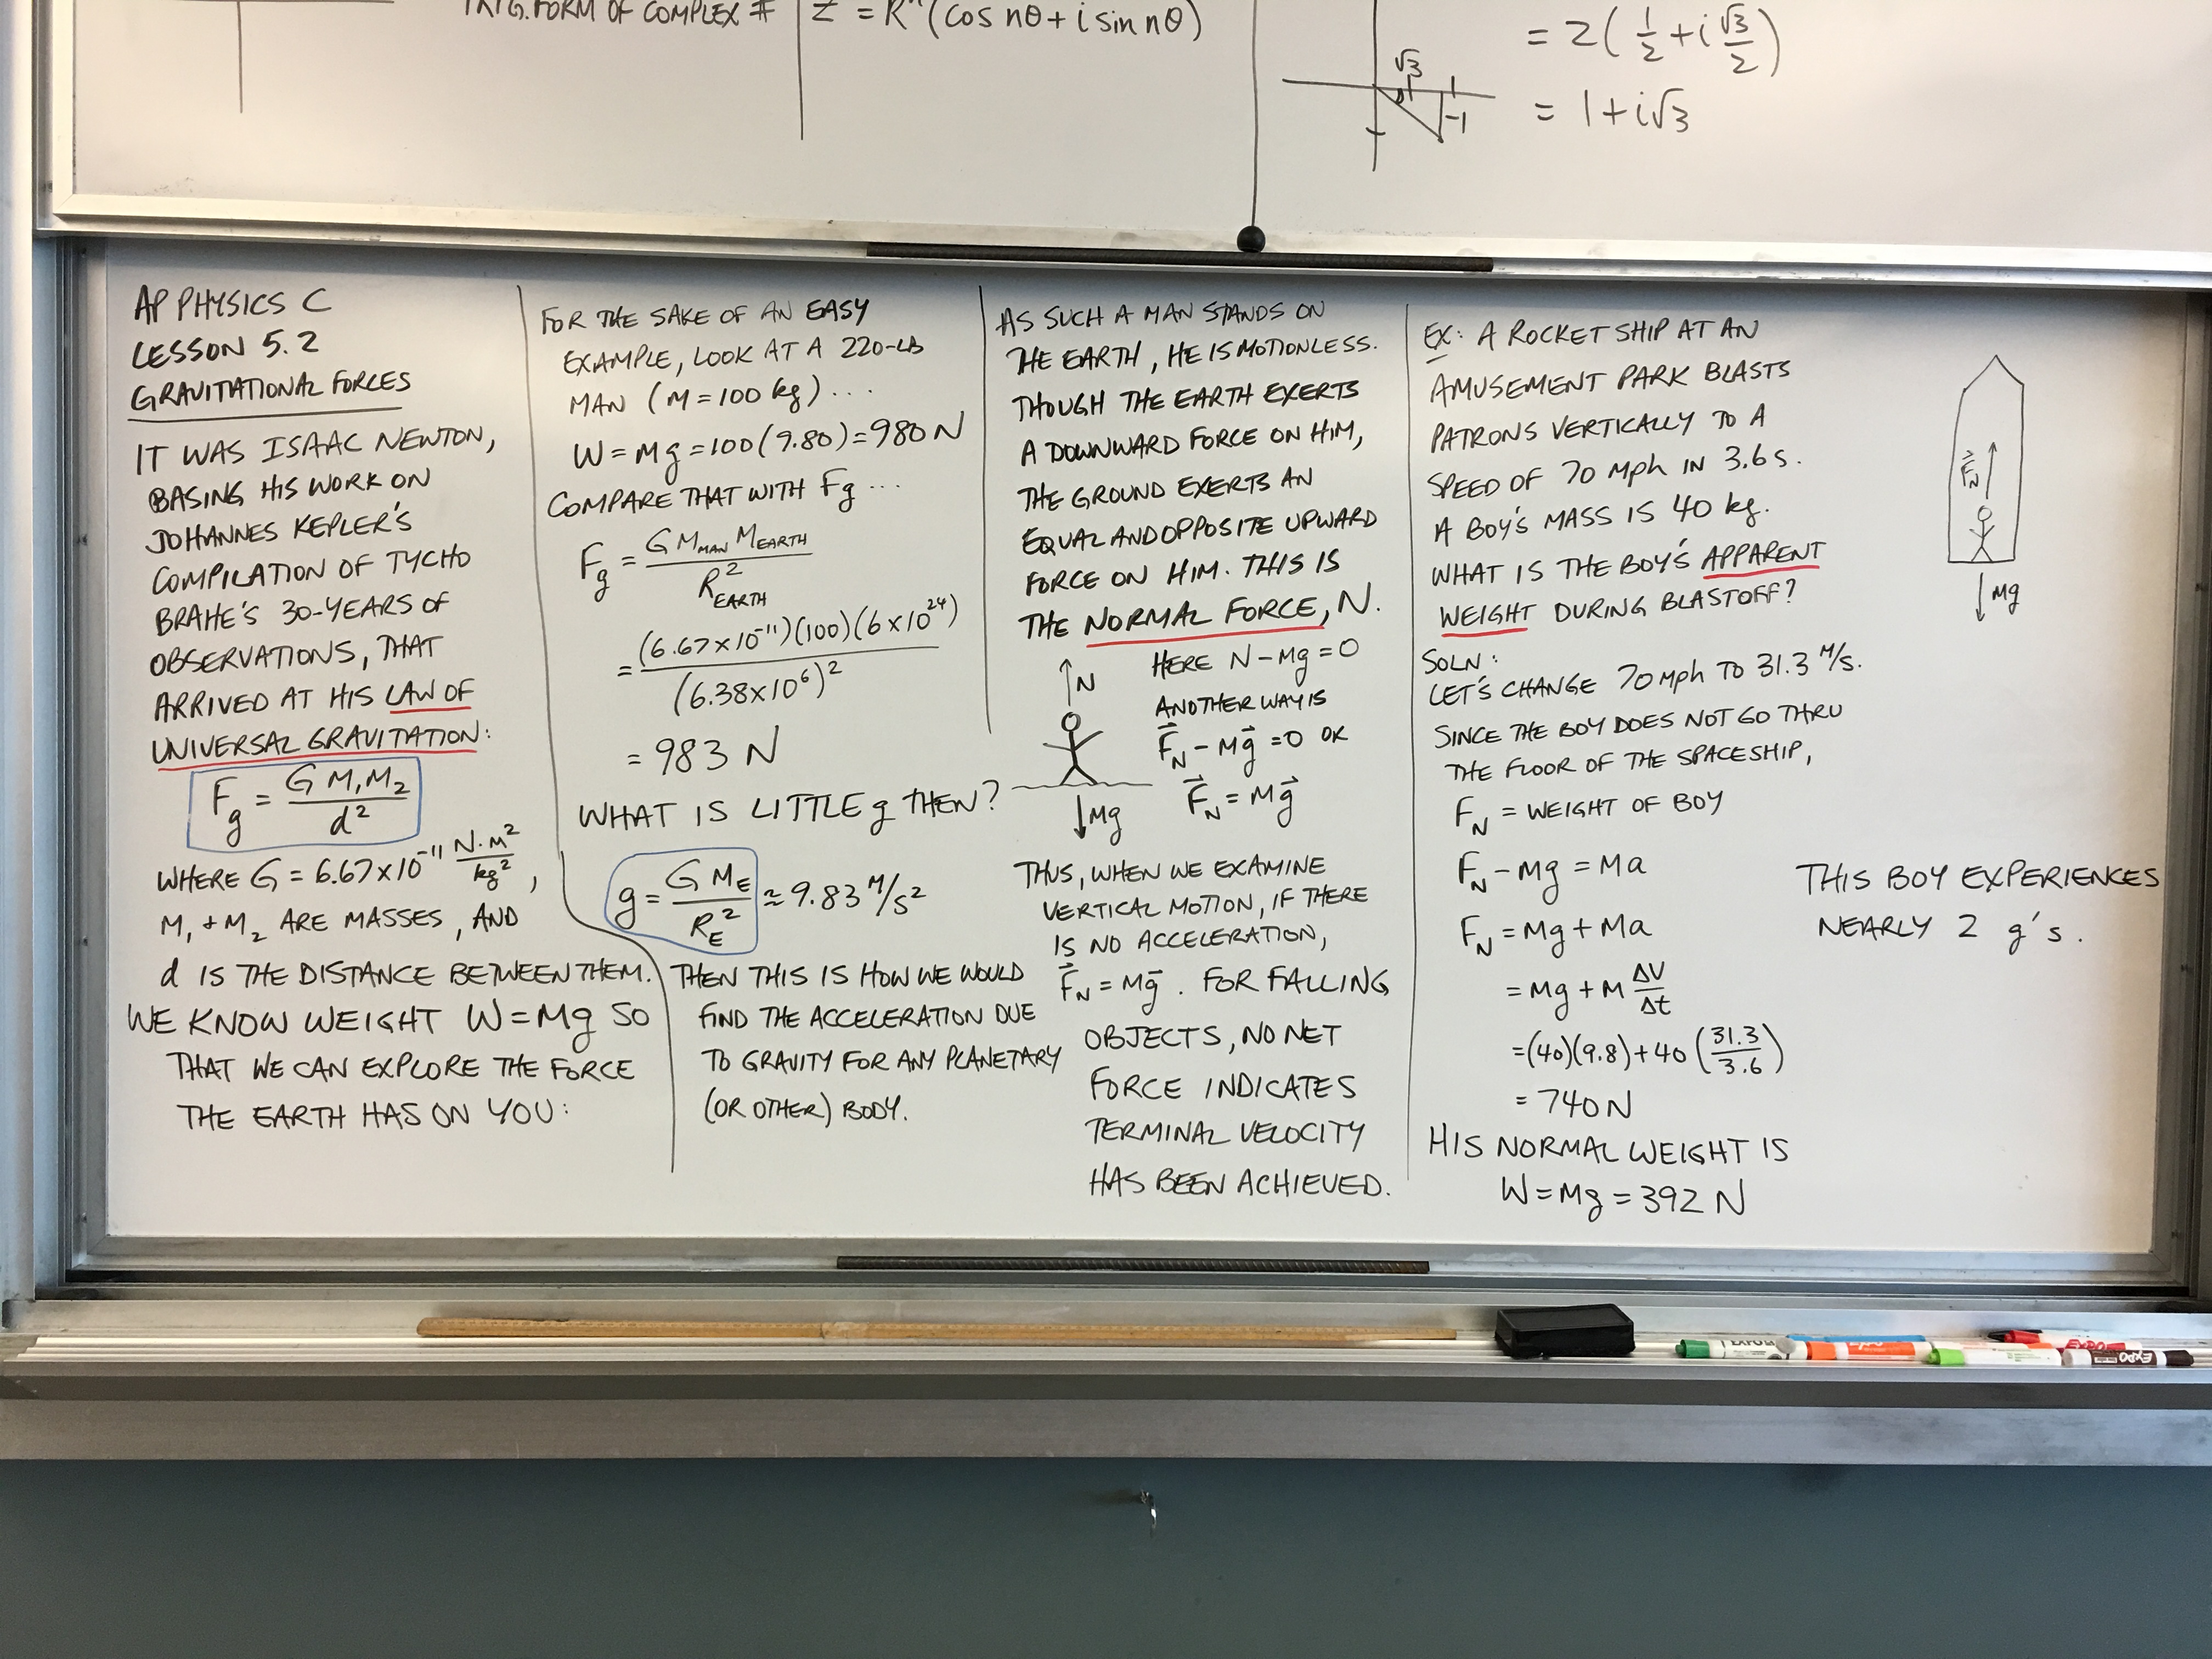 TRIG. FORM OF COMPLEX #
Z = Rⁿ(cos nθ + i sin nθ)
√3
-1
= 2(1/2 + i √3/2)
= 1 + i√3
AP PHYSICS C
LESSON 5.2
GRAVITATIONAL FORCES
IT WAS ISAAC NEWTON,
BASING HIS WORK ON
JOHANNES KEPLER'S
COMPILATION OF TYCHO
BRAHE'S 30-YEARS OF
OBSERVATIONS, THAT
ARRIVED AT HIS LAW OF
UNIVERSAL GRAVITATION:
F_g = G M₁M₂ / d²
WHERE G = 6.67×10⁻¹¹ N·m²/kg²,
M₁ + M₂ ARE MASSES, AND
d IS THE DISTANCE BETWEEN THEM.
WE KNOW WEIGHT W = Mg SO
THAT WE CAN EXPLORE THE FORCE
THE EARTH HAS ON YOU:
FOR THE SAKE OF AN EASY
EXAMPLE, LOOK AT A 220-LB
MAN (M = 100 kg)...
W = Mg = 100(9.80) = 980 N
COMPARE THAT WITH Fg...
F_g = G M_MAN M_EARTH / R²_EARTH
= (6.67×10⁻¹¹)(100)(6×10²⁴) / (6.38×10⁶)²
= 983 N
WHAT IS LITTLE g THEN?
g = G M_E / R_E² ≈ 9.83 M/s²
THEN THIS IS HOW WE WOULD
FIND THE ACCELERATION DUE
TO GRAVITY FOR ANY PLANETARY
(OR OTHER) BODY.
AS SUCH A MAN STANDS ON
THE EARTH, HE IS MOTIONLESS.
THOUGH THE EARTH EXERTS
A DOWNWARD FORCE ON HIM,
THE GROUND EXERTS AN
EQUAL AND OPPOSITE UPWARD
FORCE ON HIM. THIS IS
THE NORMAL FORCE, N.
N
Mg
HERE N - Mg = 0
ANOTHER WAY IS
F⃗_N - Mg⃗ = 0 OR
F⃗_N = Mg⃗
THUS, WHEN WE EXAMINE
VERTICAL MOTION, IF THERE
IS NO ACCELERATION,
F⃗_N = Mg⃗. FOR FALLING
OBJECTS, NO NET
FORCE INDICATES
TERMINAL VELOCITY
HAS BEEN ACHIEVED.
EX: A ROCKET SHIP AT AN
AMUSEMENT PARK BLASTS
PATRONS VERTICALLY TO A
SPEED OF 70 mph IN 3.6 s.
A BOY'S MASS IS 40 kg.
WHAT IS THE BOY'S APPARENT
WEIGHT DURING BLASTOFF?
SOLN:
LET'S CHANGE 70 mph TO 31.3 M/s.
SINCE THE BOY DOES NOT GO THRU
THE FLOOR OF THE SPACESHIP,
F_N = WEIGHT OF BOY
F_N - Mg = Ma
F_N = Mg + Ma
= Mg + M ΔV/Δt
= (40)(9.8) + 40 (31.3/3.6)
= 740 N
HIS NORMAL WEIGHT IS
W = Mg = 392 N
F⃗_N
Mg
THIS BOY EXPERIENCES
NEARLY 2 g's.
EXPO
EXPO
EXPO
EXPO